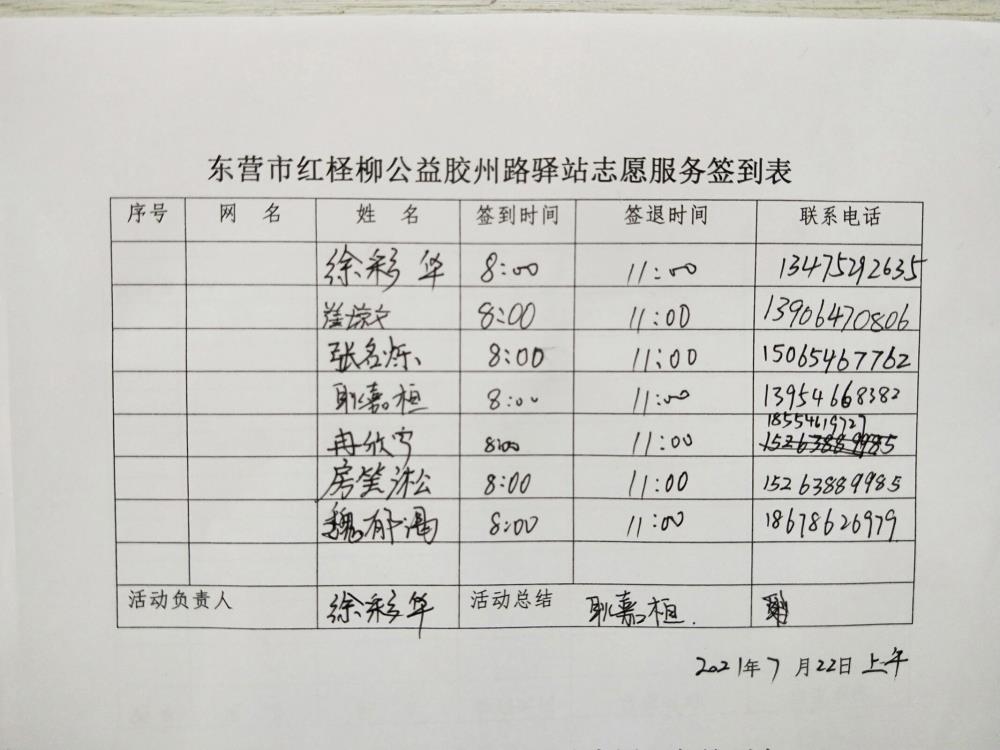 东营市红柽柳公益胶州路驿站志愿服务签到表
序号 网 名 姓 名 签到时间 签退时间 联系电话
徐彩华 8:00 11:00 13475292635
8:00 11:00 13906470806
张名烁 8:00 11:00 15065467762
耿嘉桓 8:00 11:00 13954668382
18554619727
冉欣宁 8:00 11:00 15263889985
房笑淞 8:00 11:00 15263889985
魏郁 8:00 11:00 18678626979
活动负责人 徐彩华 活动总结 耿嘉桓.
2021年7月22日上午